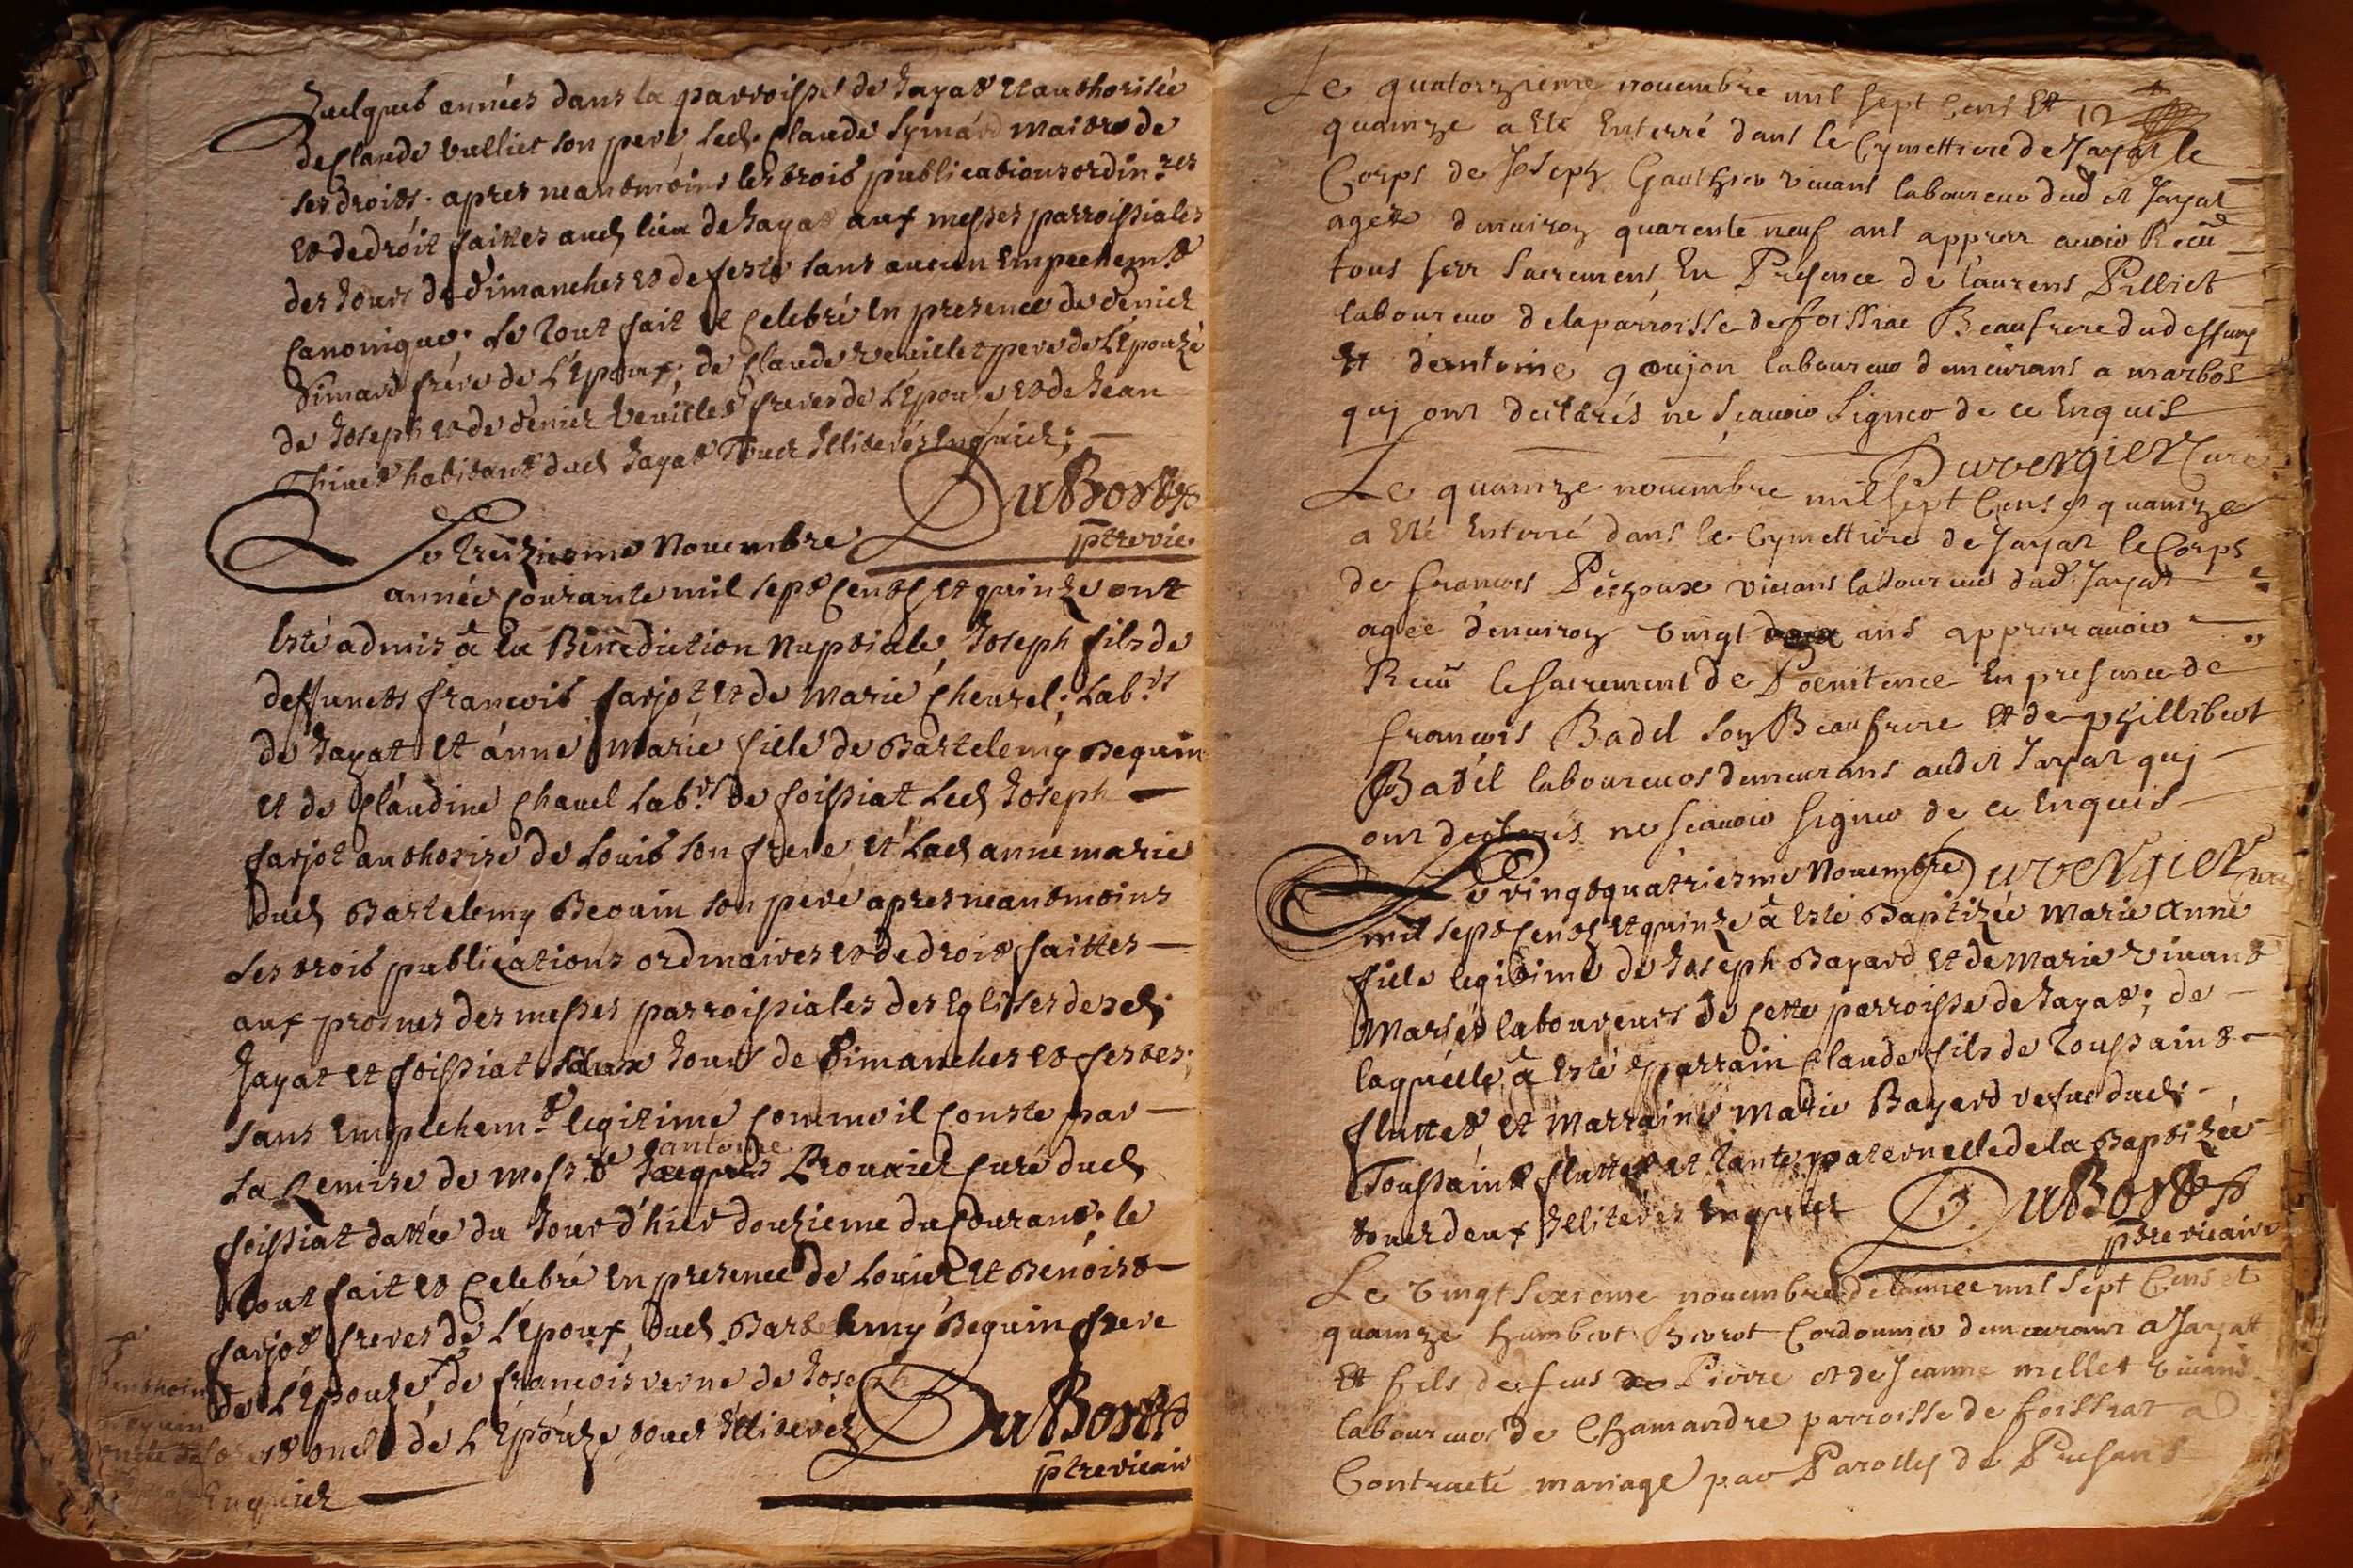 quelques années dans la parroisse de Jayat et authorisée
de Claude vulliet son pere, led. Claude Symard maitre de
ses droits. apres neantmoins les trois publications ordin.res
et de droit faittes aud. lieu de Jayat aux messes parroissiales
des Jours de dimanches et de feste sans aucun Empechem.t
Canonique; Le Tout fait et Celebré En presence de denier
Simard frére de L'Epoux; de Claude veuillet pere de L'Epouze
de Joseph et de denier veuillet freres de L'Epouse et de Jean
Thinet habitant dud. Jayat Tous Illiterés Enquier;
DuBost
ptre vic.
Le Treiziesme Novembre
année Courante mil sept Cents et quinze ont
Esté admis à la Benediction Nuptiale, Joseph fils de
deffuncts francois farjot et de Marie Cheurel; Lab.rs
de Jayat et ánne Marie fille de Bartelemy Beguin
et de Claudine Chavel Lab.rs de foissiat Led. Joseph
farjot authorisé de Louis son frere et Lad. anne marie
dud. Bartelemy Beguin son pere apres neantmoins
Les trois publications ordinaires et de droit faittes
aux prosnes des messes parroissiales des Eglises desd.
Jayat et foissiat aux Jours de Dimanches et festes;
sans Empechem.t legitime comme il Conste par
La Remise de Mess.e antoine Brouaier Curé dud.
foissiat dattée du Jour d'hier douzieme du Courant; le
Tout fait et Celebré En presence de Louis et Benoist
farjot freres de L'Epoux, dud. Bartelemy Beguin frere
de L'Epouze, de francois verne de Joseph
oncle de L'Epouze tous Illiterés
Enquier
DuBost
ptre vicair
Le quatorzieme novembre mil sept Cens et 12
quainze a Eté Enterré dans le Cymettiere de Jayat le
Corps de Joseph Gauthier vivant laboureur dud et Jayat
agéz d'environ quarente neuf ans apprez avoir Receu
tous ses Sacremens, En Presence de Laurens Pilliet
laboureur de la parroisse de foissiac Beaufrere dud deffunt
Et d'entoine goujon laboureur demeurant a marbos
qui ont declarés ne scavoir Signer de ce Enquis
Duvergier Curé
Le quainze novembre mil sept Cens et quainze
a Eté Enterré dans le Cymettiere de Jayat le Corps
de francois Pérzoux vivans laboureur dud Jayat
agée d'environ vingt ans apprez avoir
Receu le Sacrement de Poenitence En presence de
francois Badel Son Beaufrere Et de phillibert
Badel laboureurs demeurans audit Jayat qui
ont declarés ne scavoir Signer de ce Enquis
Duvergier Curé
Le vingt quatriesme Novembre
mil sept Cents et quinze à Esté Baptizée Marie Anne
fille legitime de Joseph Bayard et de Marie vivant
Mariés laboureurs de Cette parroisse de Jayat; de
laquelle à Esté parrain Claude fils de Toussaint
fluttet et Marraine Marie Bayard vefue dud.
Toussaint fluttet et Tante paternelle de la Baptizée
tous deux Illiterés Enquier
DuBost
ptre vicaire
Le vingt Sixieme novembre de l'annee mil Sept Cens et
quainze humbert Cordonnier demeurant a Jayatt
Et fils de feus Pierre et de Jeanne millet vivans
laboureur de Chamandre parroisse de foissiat a
Contracté mariage par Parolles de Presans